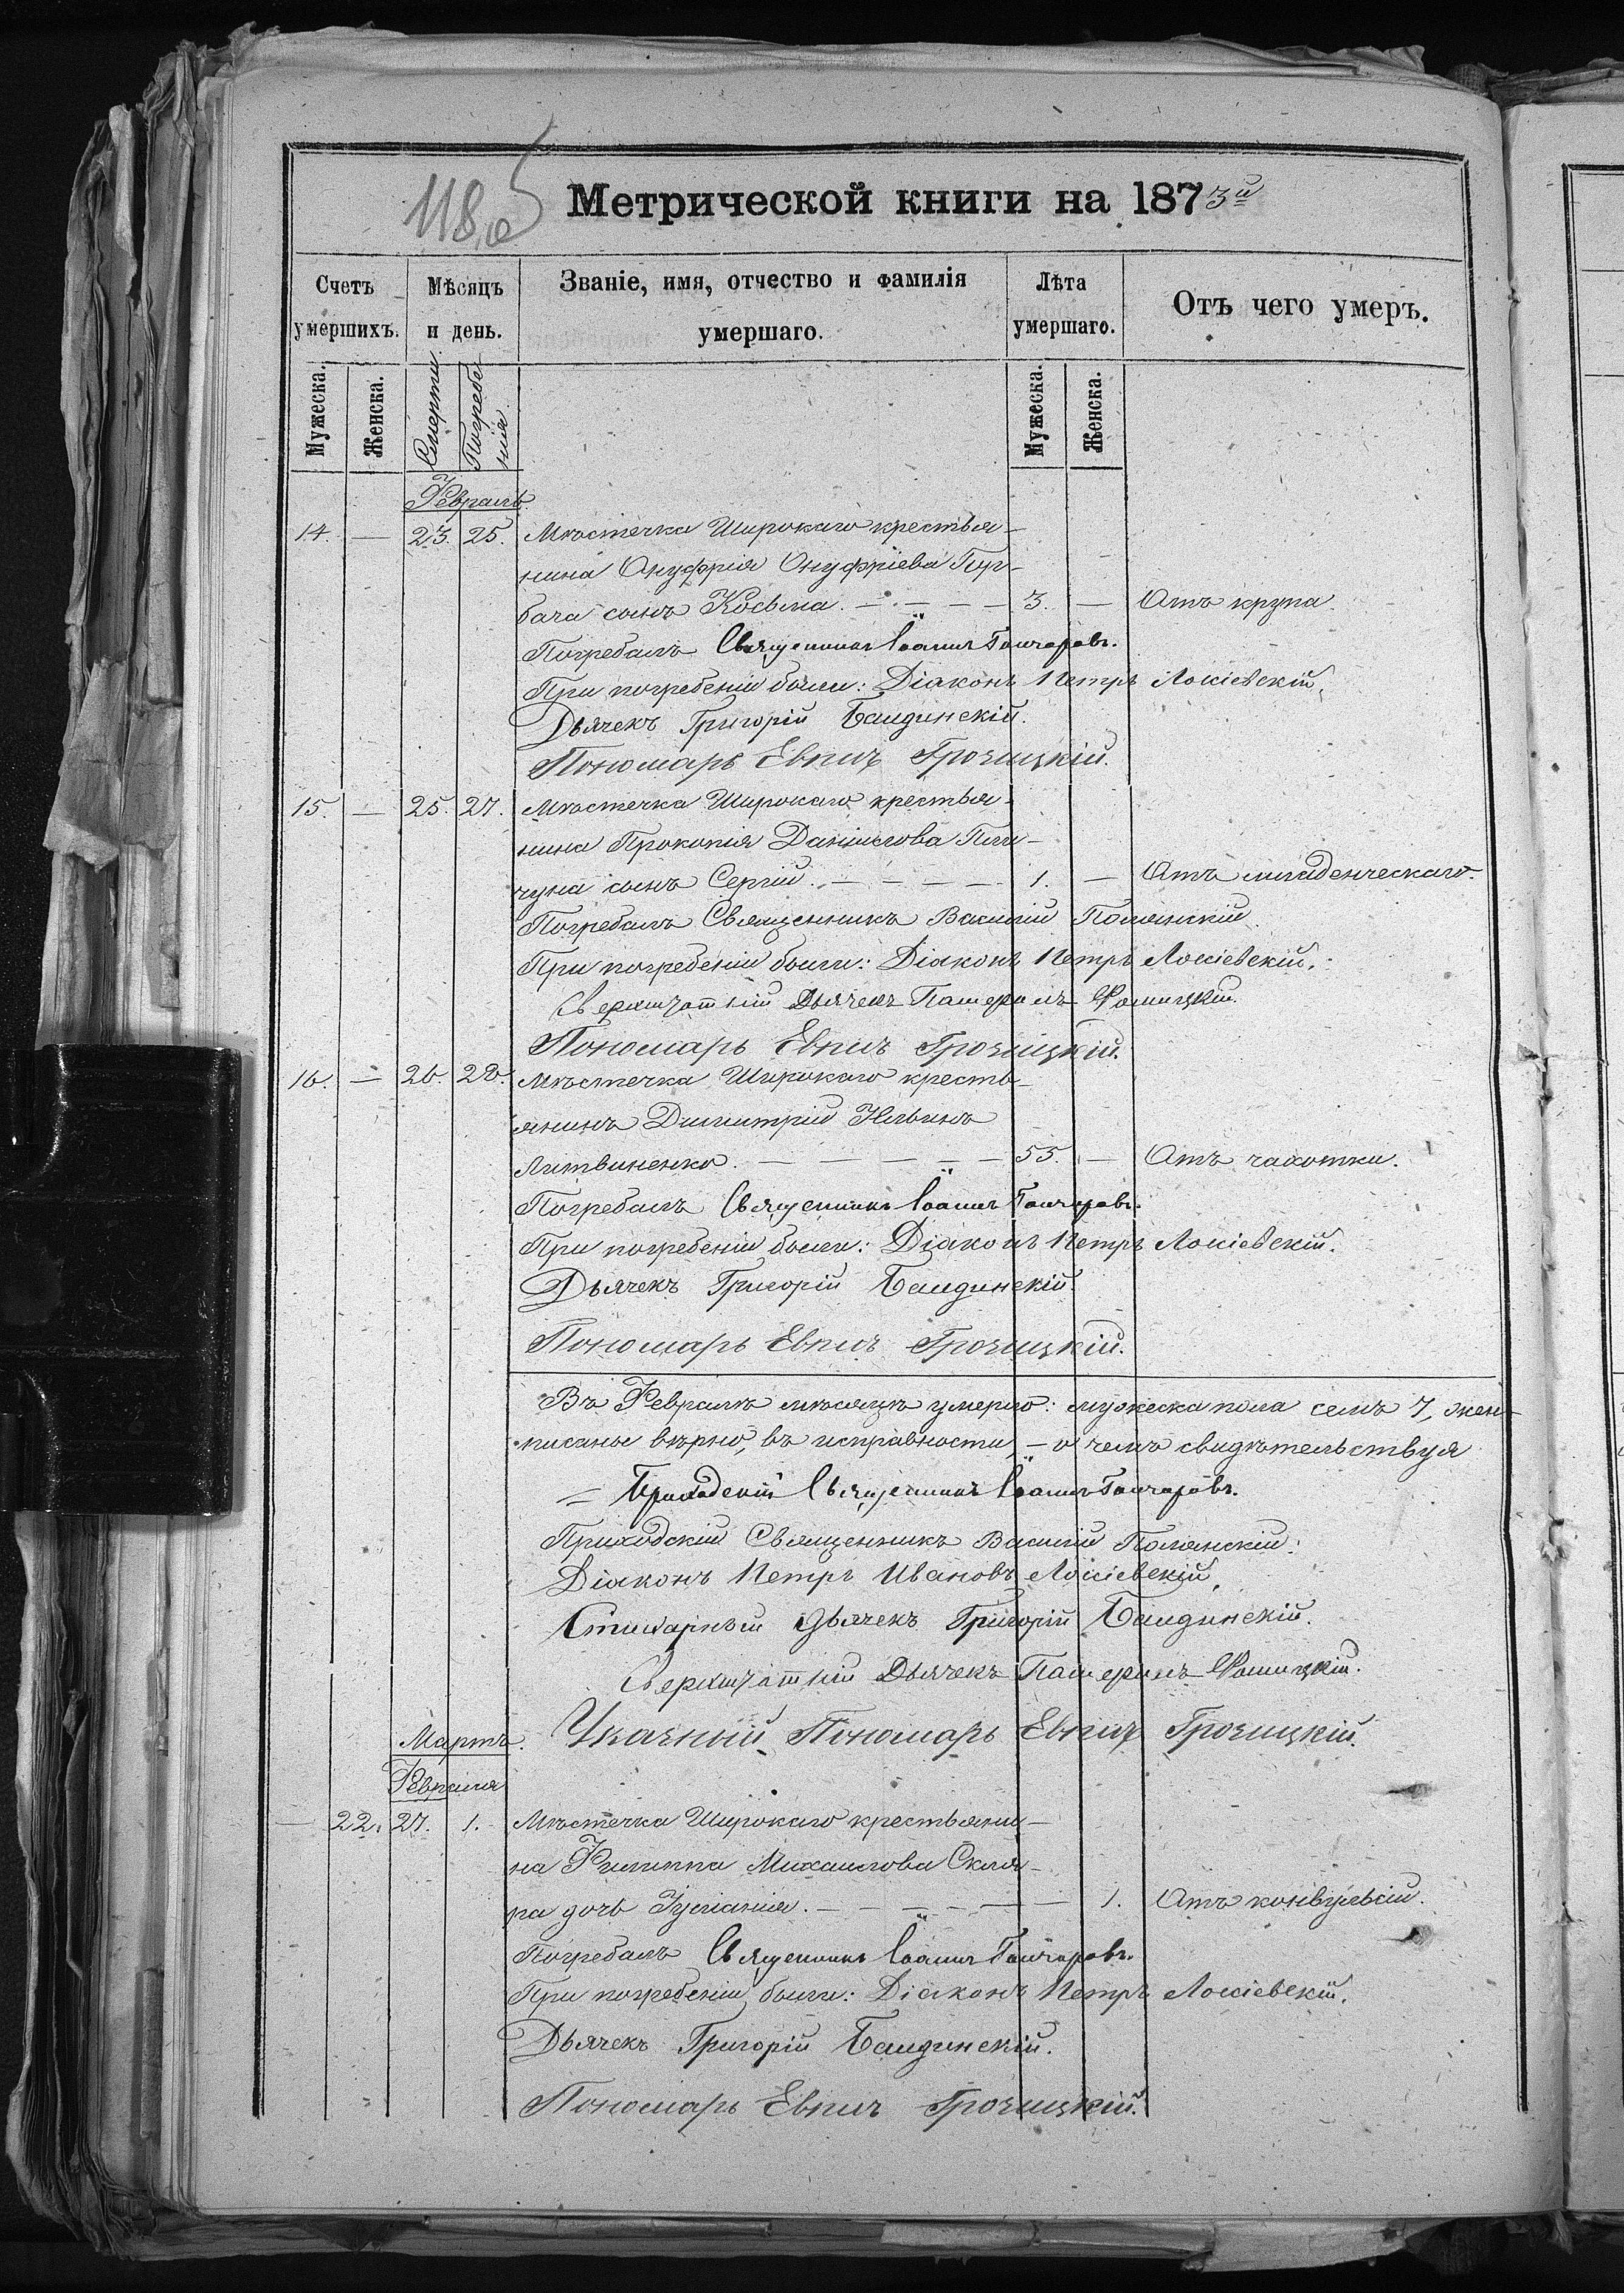 118 об
Метрической книги на 1873й
Счетъ умершихъ. Мѣсяцъ и день. Званіе, имя, отчество и фамилія умершаго. Лѣта умершаго. Отъ чего умеръ.
Мужеска. Женска. Смерти Погребенія. Мужеска. Женска.
Февраль
14. — 23. 25. Мѣстечка Широкаго крестья-
нина Онуфрія Онуфріева Гор-
бача сынъ Косьма. — — — — 3. — Отъ крупа.
Погребалъ Священникъ Іоаннъ Гончаровъ.
При погребеніи были: Діаконъ Петръ Лосіевскій,
Дьячекъ Григорій Бандинскій.
Пономарь Евпл Грозицкій.
15. — 25. 27. Мѣстечка Широкаго крестья-
нина Прокопія Даніилова
чуна сынъ Сергій. — — — — 1. — Отъ младенческаго.
Погребалъ Священникъ Василій Полянскій
При погребеніи были: Діаконъ Петръ Лосіевскій,
Сверхштатній Дьячекъ
Пономарь Евплъ Грозицкій.
16. — 26. 28. Мѣстечка Широкаго кресть-
янинъ Димитрій Ильинъ
Литвиненко. — — — — — 55. — Отъ чахотки.
Погребалъ Священникъ Іоаннъ Гончаровъ.
При погребеніи были: Діаконъ Петръ Лосіевскій.
Дьячекъ Григорій Бандинскій.
Пономарь Евплъ Грозицкій.
Въ Февралѣ мѣсяцѣ умерло: мужеска пола семь 7, жен-
писаные вѣрно, въ исправности, — о чемъ свидѣтельствуя
— Приходскій Священникъ Іоаннъ Гончаровъ.
Приходскій Священникъ Василій Полянскій.
Діаконъ Петръ Ивановъ Лосіевскій,
Стихарный Дьячекъ Григорій Бандинскій.
Сверхштатній Дьячекъ
Указный Пономарь Евплъ Грозицкій.
Мартъ.
Февраля
— 22. 27. 1. Мѣстечка Широкаго крестьяни-
на Филиппа Михаилова Скля-
ра дочь Іуліанія. — — — — — 1. Отъ конвульсій.
Погребалъ Священникъ Іоаннъ Гончаровъ.
При погребеніи были: Діаконъ Петръ Лосіевскій.
Дьячекъ Григорій Бандинскій.
Пономарь Евплъ Грозицкій.